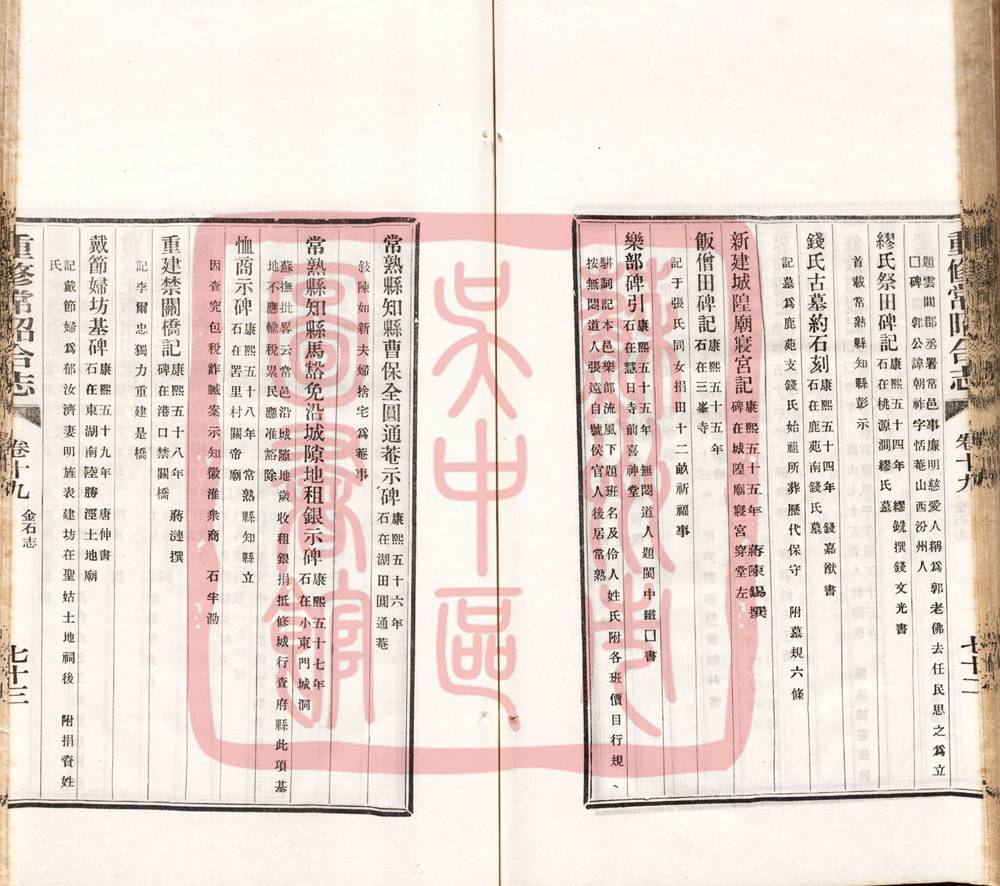 重修常昭合志
卷十九
七十二
題雲間郡丞署常邑事廉明慈愛人稱爲郭老佛去任民思之爲立
囗碑 郭公諱朝祚字恬菴山西汾州人
繆氏祭田碑記 康熙五十四年 繆銑撰錢文光書
石在桃源澗繆氏墓
首載常熟縣知縣彭示
錢氏古墓約石刻 康熙五十四年 錢嘉猷書
石在鹿苑南錢氏墓
記墓爲鹿苑支錢氏始祖所葬歷代保守 附墓規六條
新建城隍廟寢宮記 康熙五十五年 蔣陳錫撰
碑在城隍廟寢宮穿堂左
飯僧田碑記 康熙五十五年
石在三峯寺
記于張氏同女捐田十二畝祈福事
樂部碑引 康熙五十五年 無悶道人題閩中鐵囗書
石在慧日寺前喜神堂
駢詞記本邑樂部流風下題班名及伶人姓氏附各班價目行規
按無悶道人張遠自號侯官人後居常熟
常熟縣知縣曹保全圓通菴示碑 康熙五十六年
石在湖田圓通菴
敍陳如新夫婦捨宅爲菴事
常熟縣知縣馬豁免沿城隙地租銀示碑 康熙五十七年
石在小東門城洞
蘇撫批畧云常邑沿城隙地歲收租銀捐抵修城行查府縣此項基
地不應輸稅累民應准豁除
恤商示碑 康熙五十八年 常熟縣知縣立
石在罟里村關帝廟
因查究包稅詐贓案示知徽淮衆商 石半泐
重建禁關橋記 康熙五十八年 蔣漣撰
碑在港口禁關橋
記李爾忠獨力重建是橋
戴節婦坊基碑 康熙五十九年 唐仲書
石在東湖南陸勝涇土地廟
記戴節婦爲郁汝濟妻明旌表建坊在聖姑土地祠後 附捐資姓
氏
重修常昭合志
卷十九
金石志
七十三
蘇州市
吳中區
圖書館